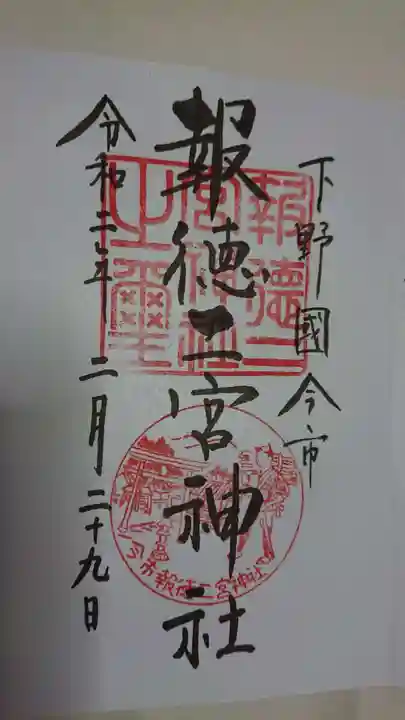 下野國今市
報徳二宮神社
令和二年 二月二十九日
報徳二宮神社之璽
今市報徳二宮神社